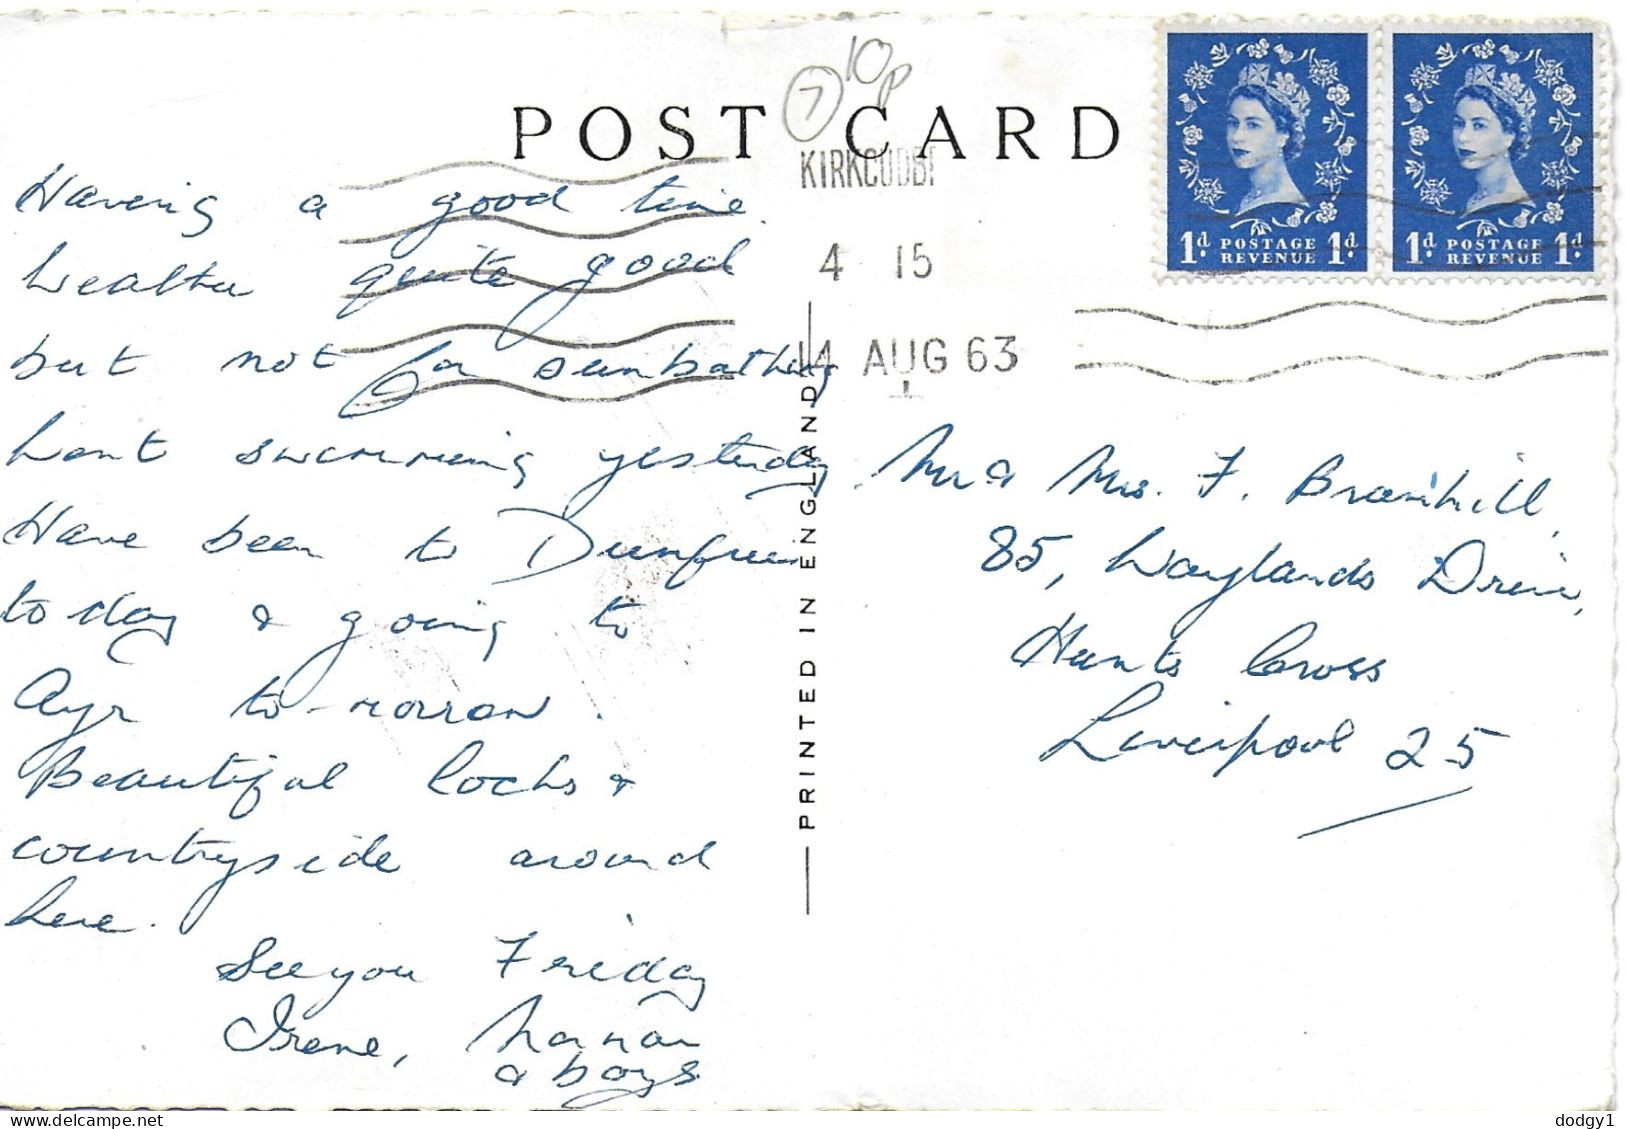 10p
7
POST CARD
KIRKCUDBR
4 15
14 AUG 63
1d POSTAGE REVENUE 1d
1d POSTAGE REVENUE 1d
Having a good time
Weather quite good
but not for sunbathing
Went swimming yesterday
Have been to Dumfries
to day & going to
Ayr to-morrow.
Beautiful lochs &
countryside around
here.
See you Friday
Irene,
& boys
PRINTED IN ENGLAND
Mr & Mrs. F. Bramhill,
85, Waylands Drive,
Hunts Cross
Liverpool 25
dodgy1